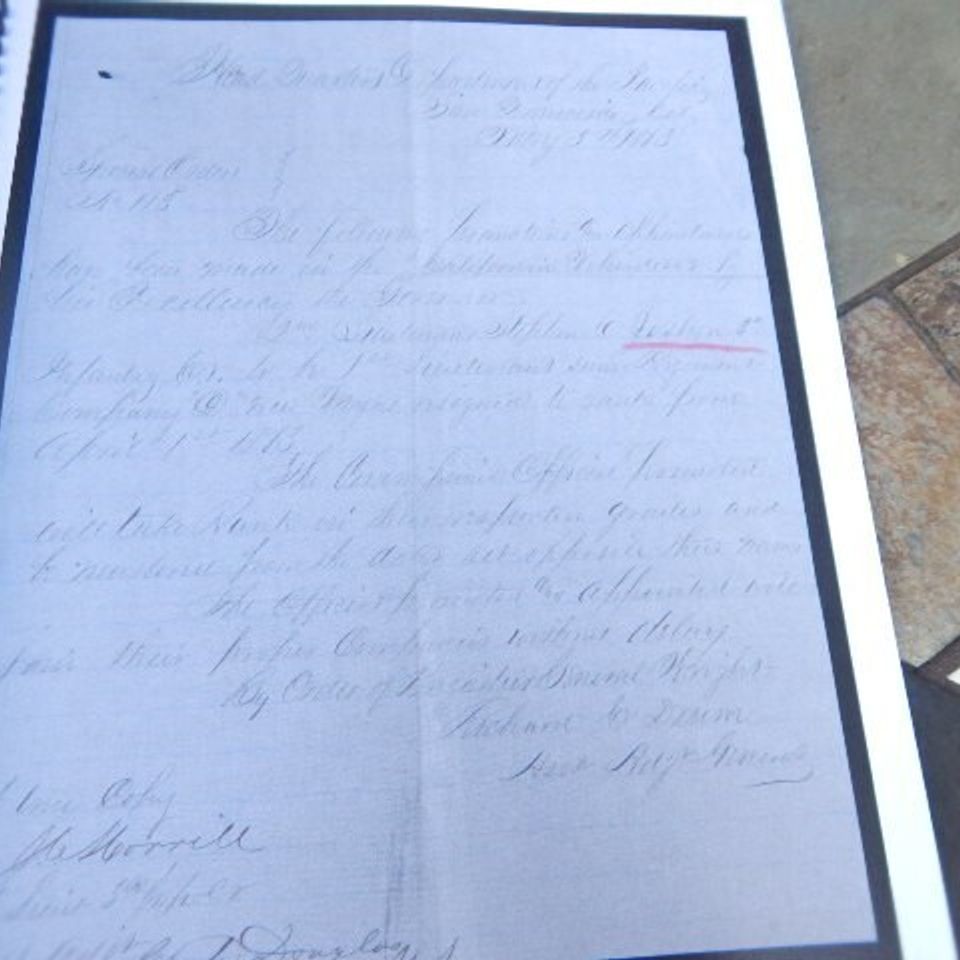 Head Quarters Department of the Pacific
San Francisco, Cal,
May 5th 1863
Special Order
No 115
The following Promotions and Appointments
have been made in the California Volunteers by
his Excellency the Governor
2nd Lieutenant Stephen 3d
Infantry C.V. to be 1st Lieutenant same Regiment
Company D vice resigned to rank from
April 1st 1863
The Company Officers promoted
will take Rank in their respective grades and
be mustered from the dates set opposite their names
The Officers promoted and appointed will
join their proper Companies without delay
By Order of Brigadier General Wright
Richard C. Drum
Asst Adjt General
True Copy
Morrill
Lieut 3d Inf C.V.
Douglas